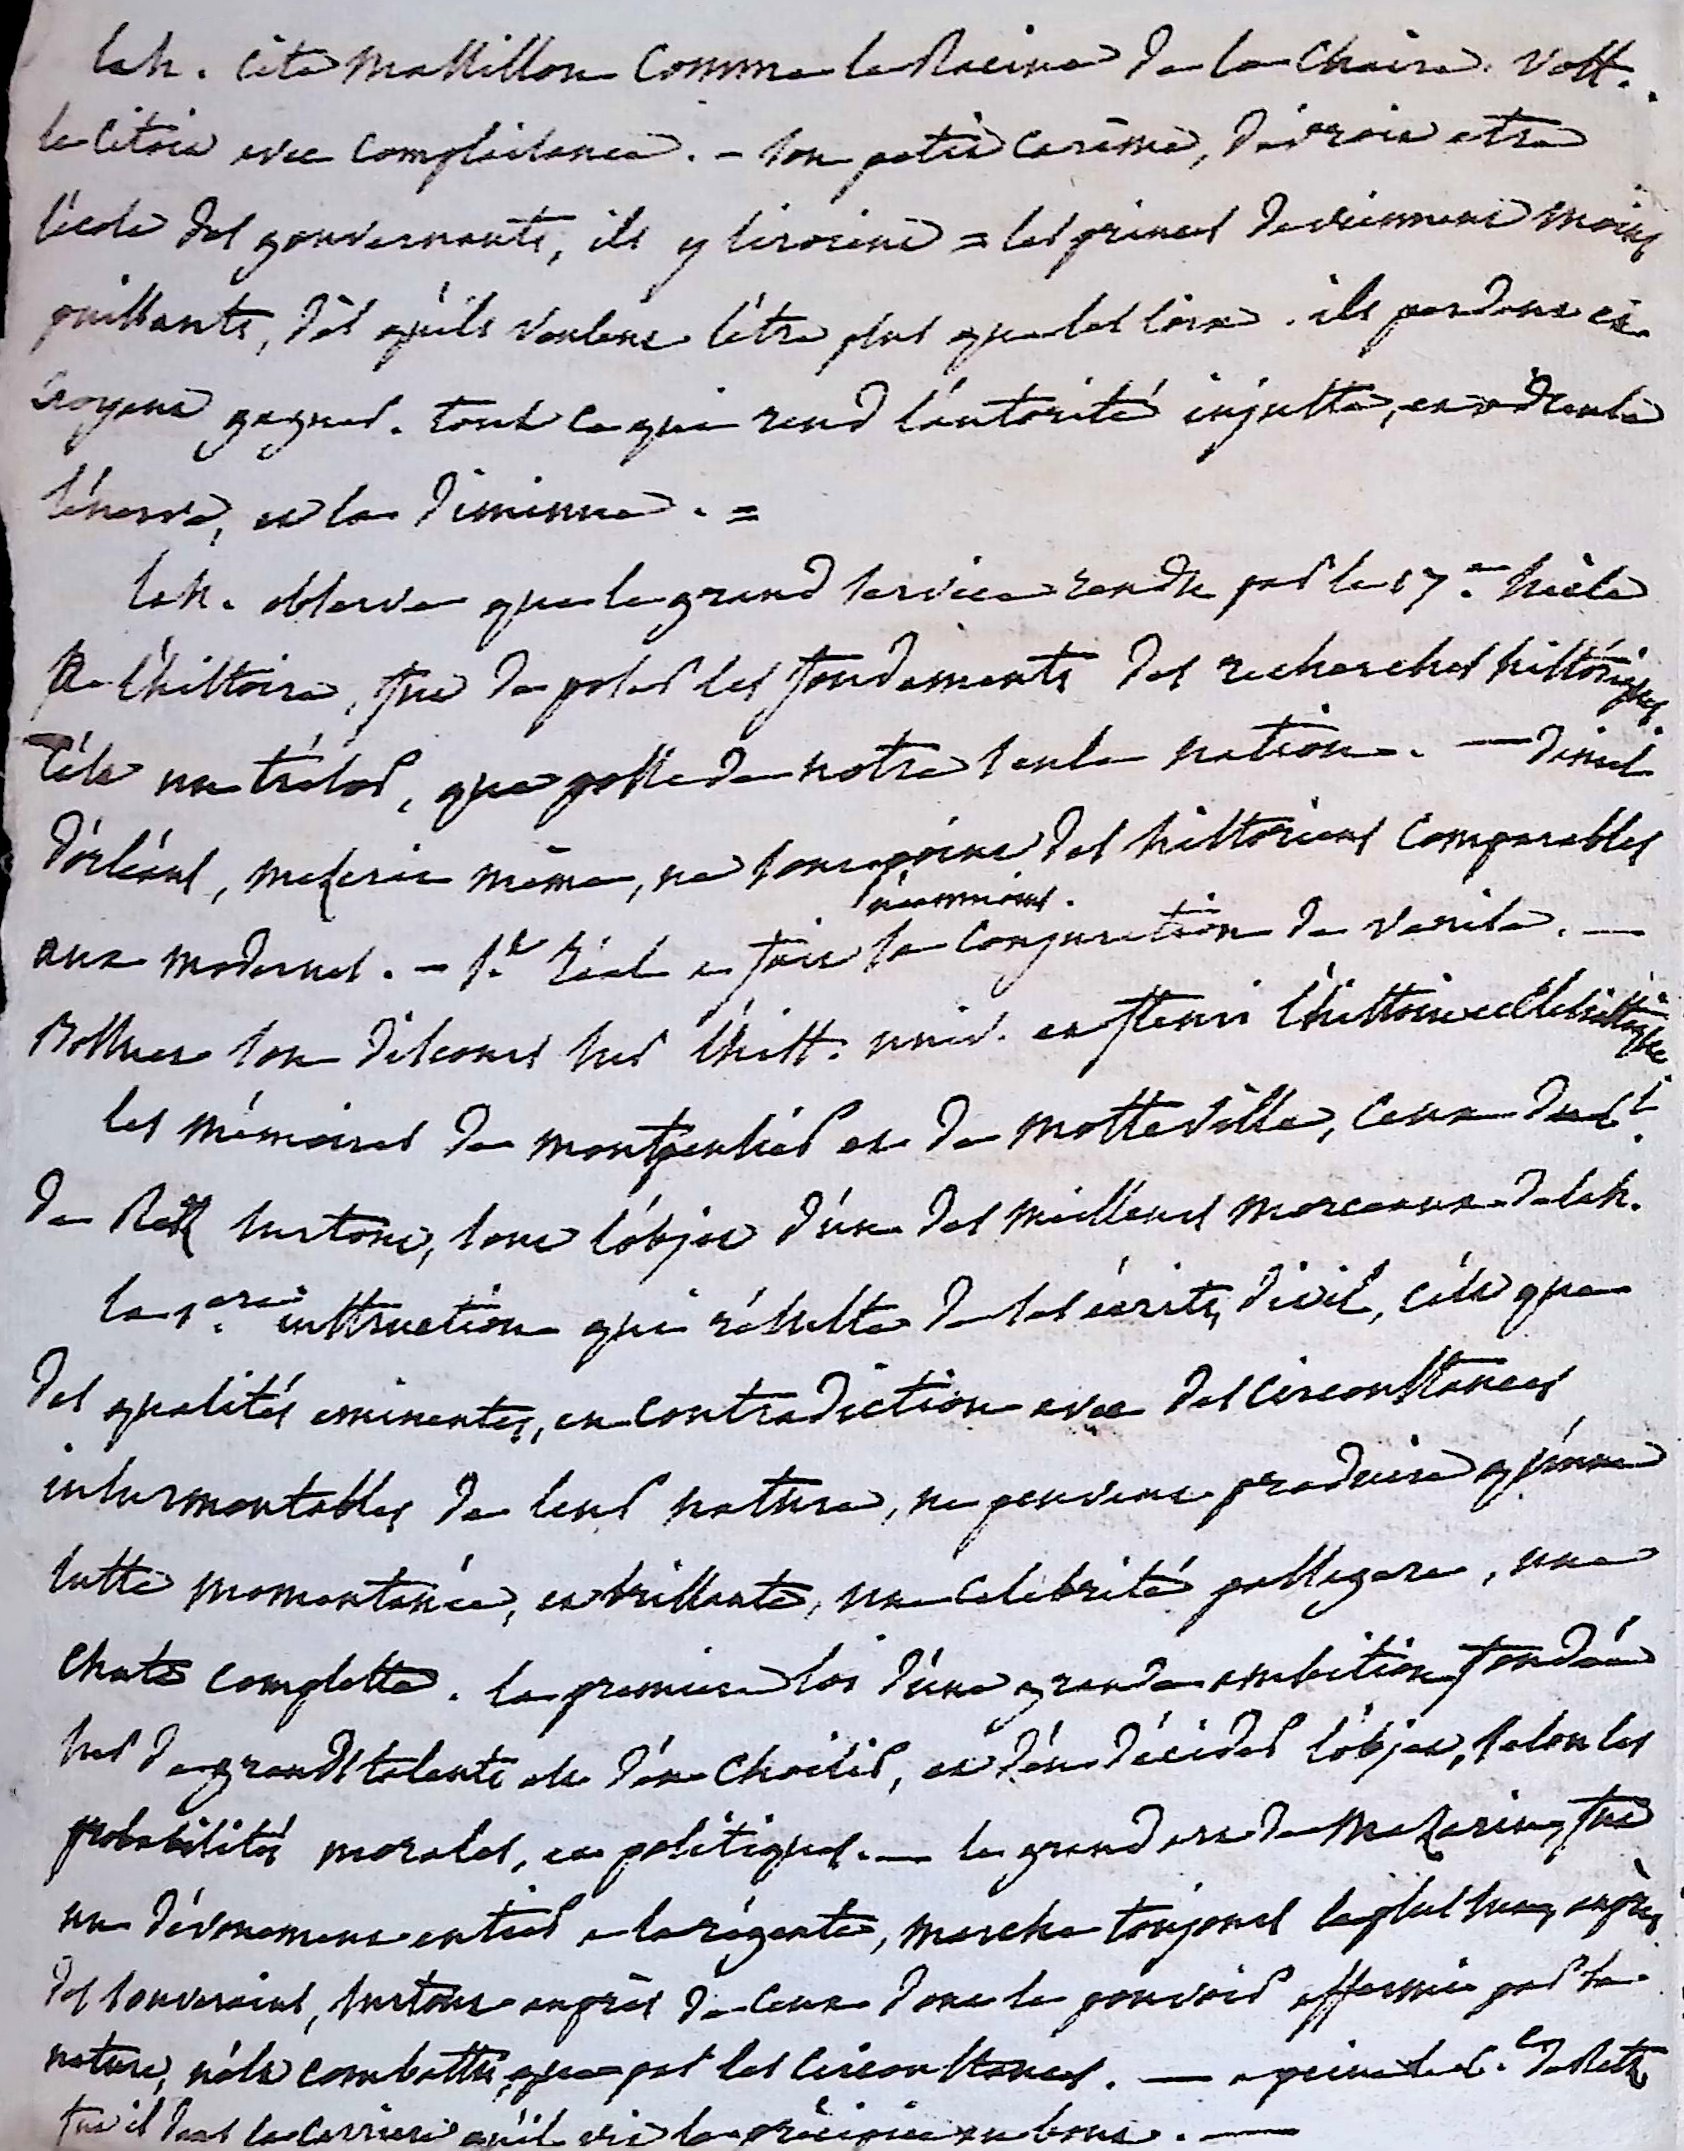 lah. cite Massillon comme le Racine de la chaire. Volt.
le citoit avec complaisance. - son petit carême, devroit etre
l'école des gouvernants, ils y liroient = les princes deviennent moins
puissants, dès qu'ils veulent l'être plus que les loix. ils perdent en
croyant gagner. tout ce qui rend l'autorité injuste, et odieuse
l'énerve, et la diminue. =
lah. observe que le grand service rendu par le 17.e siècle
à l'histoire, fut de poser les fondements des recherches historiques
c'est un trésor, que possède notre seule nation. — Daniel
d'orléans, mezerai même, ne sont point des historiens comparables
néanmoins.
aux modernes. - S.t Réal a fait la conjuration de Venise. —
Bossuet son discours sur l'hist. univ. et fleuri l'histoire ecclésiastique
les mémoires de montpensier et de motteville, ceux du c.l
de Retz surtout, sont l'objet d'un des meilleurs morceaux de lah.
la 1.ere instruction qui résulte de ses écrits, dit il, c'est que
des qualités eminentes, en contradiction avec des circonstances
insurmontables de leur nature, ne peuvent produire qu'une
lutte momentanée, et brillante, une celebrité passagere, une
chute complette. la premiere loi d'une grande ambition fondée
sur de grands talents est d'en choisir, et d'en décider l'objet, selon les
probabilités morales, et politiques. — le grand art de Mazarin, fut
un dévouement entier a la régente, marche toujours la plus sure, auprès
des souverains, surtout auprès de ceux dont le pouvoir affermi par la
nature, n'est combattu que par les circonstances. — a peine le c.l de Retz
fut il dans la carriere qu'il vit le précipice au bout. —